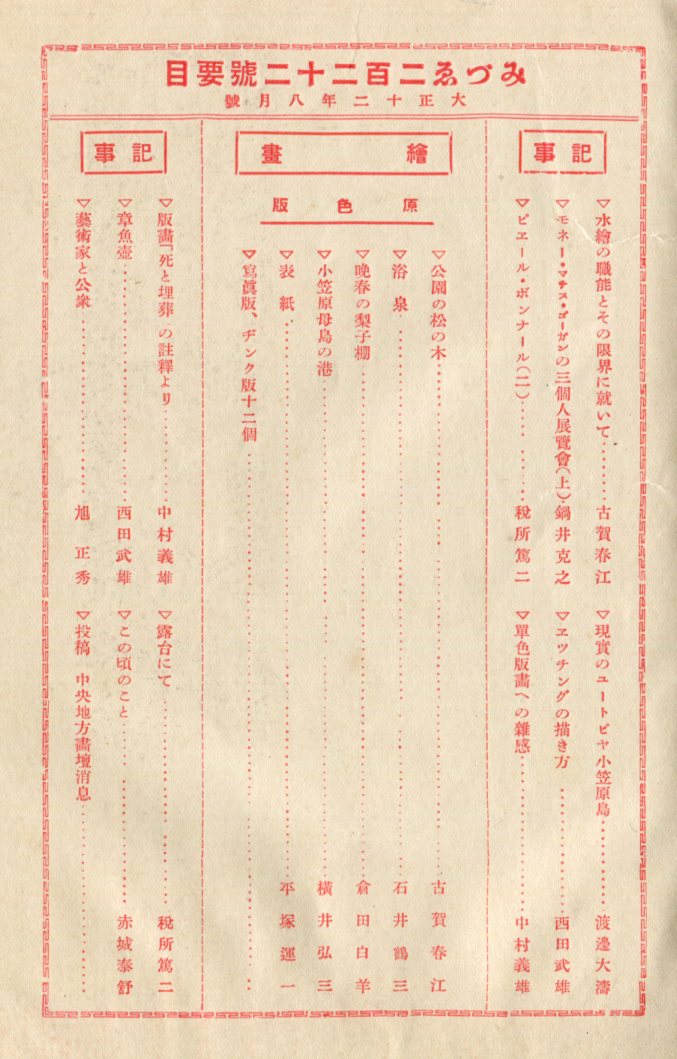 みづゑ二百二十二號要目
大正十二年八月號
記事
▽水繪の職能とその限界に就いて‥‥‥‥古賀春江
▽モネー・マチス・ゴーガンの三個人展覽會(上)‥鍋井克之
▽ピエール・ボンナール(二)‥‥‥‥稅所篤二
▽現實のユートピヤ小笠原島‥‥‥‥渡邊大濤
▽エツチングの描き方‥‥‥‥西田武雄
▽單色版畫への雜感‥‥‥‥中村義雄
繪畫
原色版
▽公園の松の木‥‥‥‥古賀春江
▽浴泉‥‥‥‥石井鶴三
▽晩春の梨子棚‥‥‥‥倉田白羊
▽小笠原母島の港‥‥‥‥橫井弘三
▽表紙‥‥‥‥平塚運一
▽寫眞版、ヂンク版十二個‥‥‥‥
記事
▽版畫「死と埋葬」の註釋より‥‥‥‥中村義雄
▽章魚壺‥‥‥‥西田武雄
▽藝術家と公衆‥‥‥‥旭正秀
▽露台にて‥‥‥‥稅所篤二
▽この頃のこと‥‥‥‥赤城泰舒
▽投稿 中央地方畵壇消息‥‥‥‥